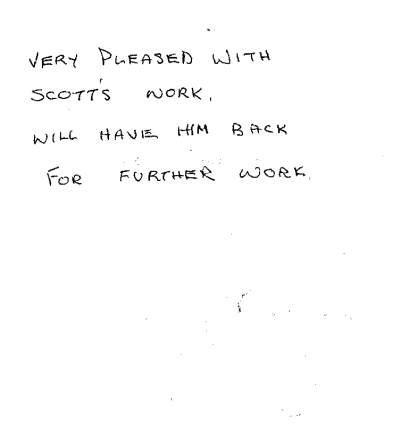 VERY PLEASED WITH
SCOTT'S WORK.
WILL HAVE HIM BACK
FOR FURTHER WORK.